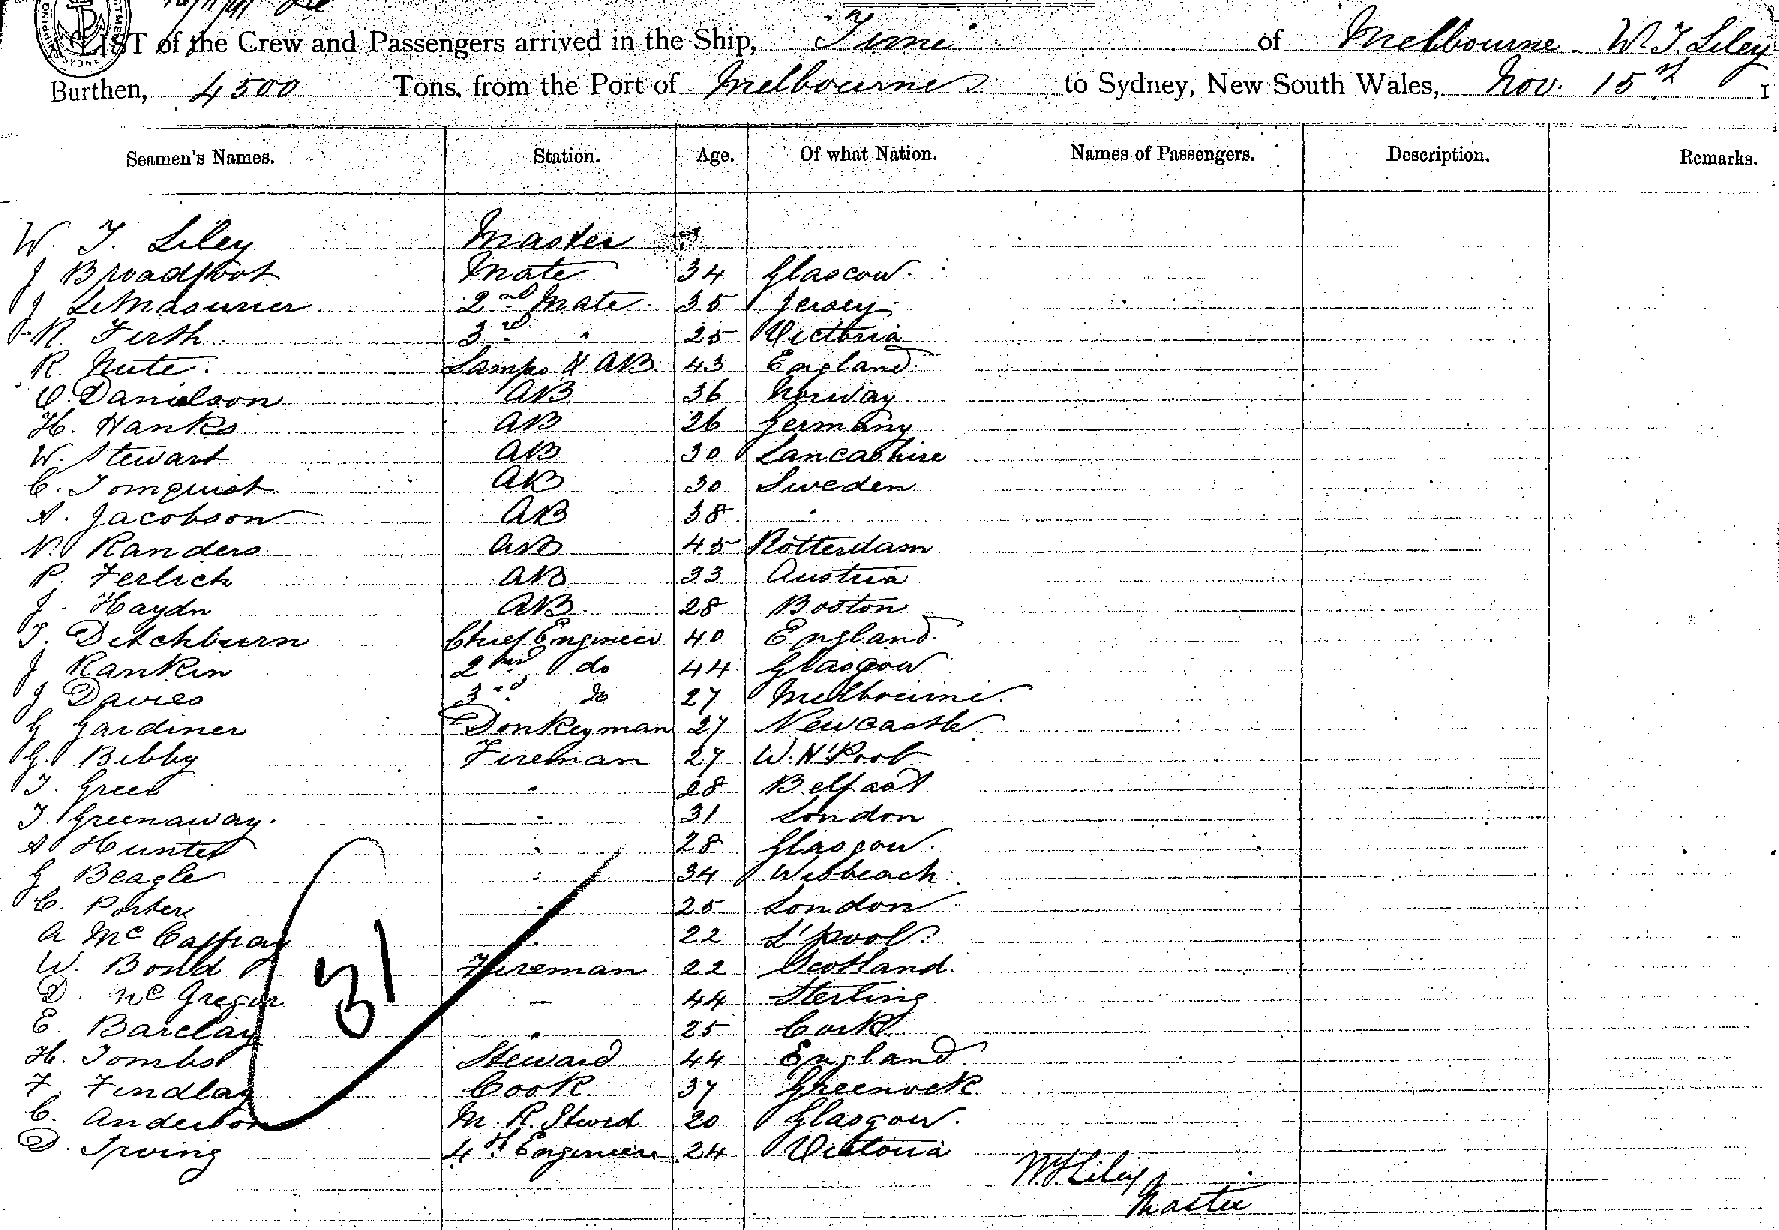 LIST of the Crew and Passengers arrived in the Ship, "Time" of Melbourne W. T. Liley
Burthen, 4500 Tons, from the Port of Melbourne to Sydney, New South Wales, Nov. 15th 1
Seamen's Names. Station. Age. Of what Nation. Names of Passengers. Description. Remarks.
W. T. Liley Master
J Broadfoot Mate 34 Glascow.
J LeMasurier 2nd Mate 35 Jersey
R. Firth 3rd " 25 Victoria
R Nute. Lamps & AB 43 England
C Danielson AB 36 Norway
H. Hanks AB 26 Germany
W. Stewart AB 30 Lancashire
C. Tornquist AB 30 Sweden
A. Jacobson AB 38 "
N. Randers AB 45 Rotterdam
P. Ferlich AB 33 Austria
J. Haydn AB 28 Boston
T. Ditchburn Chief Engineer 40 England.
J Rankin 2nd do 44 Glasgow
J Davies 3rd do 27 Melbourne.
G Gardiner Donkeyman 27 Newcastle
G. Bibby Fireman 27 W. H'Pool
T. Green " 28 Belfast
T. Greenaway. " 31 London
A Hunter " 28 Glasgow.
G Beagle " 34 Wisbeach
C. Porter " 25 London
A McCaffray " 22 L'pool.
W. Bond Fireman 22 Scotland.
D. McGregor " 44 Sterling
E. Barclay " 25 Cork
H. Tombs Steward 44 England
F. Findlay Cook 37 Greenock
C. Anderson M. R. Stwrd 20 Glasgow.
D. Irving 4th Engineer 24 Victoria
31
W T Liley
Master